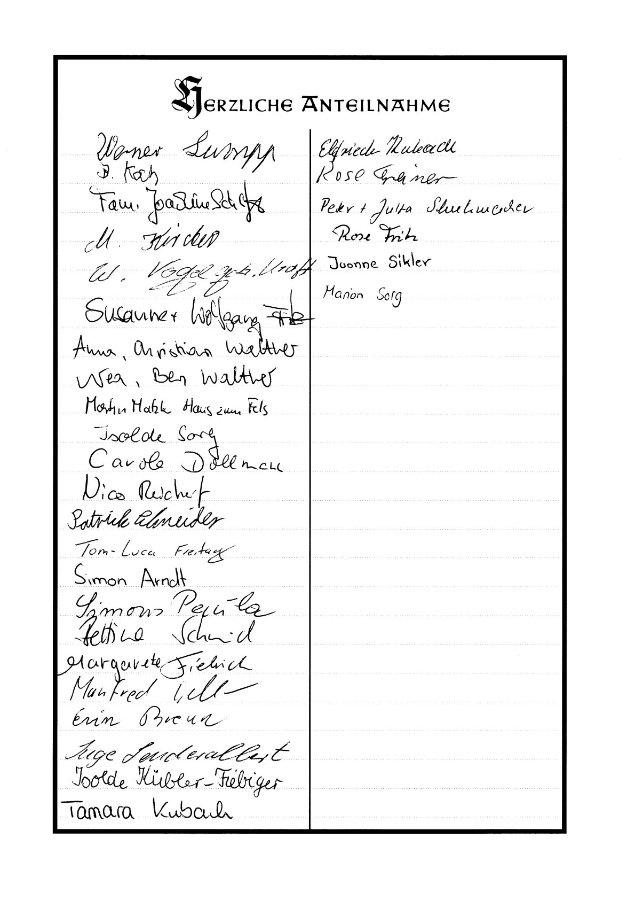 Herzliche Anteilnahme
Werner
B. Koch
Fam.
M. Kircher
W. Vogel geb. Kraft
Susanne + Wolfgang
Anna, Christian Walther
Wea, Ben Walther
Martin Haus zum Fels
Isolde Sorg
Carole Dollman
Nico Reichert
Patrick Schneider
Tom-Luca Freitag
Simon Arndt
Bettina Schmid
Margarete
Manfred
Erin Breun
Inge
Isolde Kübler-Fiebiger
Tamara Kubach
Elfriede Kubach
Rose Greiner
Peter + Jutta Schuhmacher
Rose Fritz
Ivonne Sikler
Marion Sorg